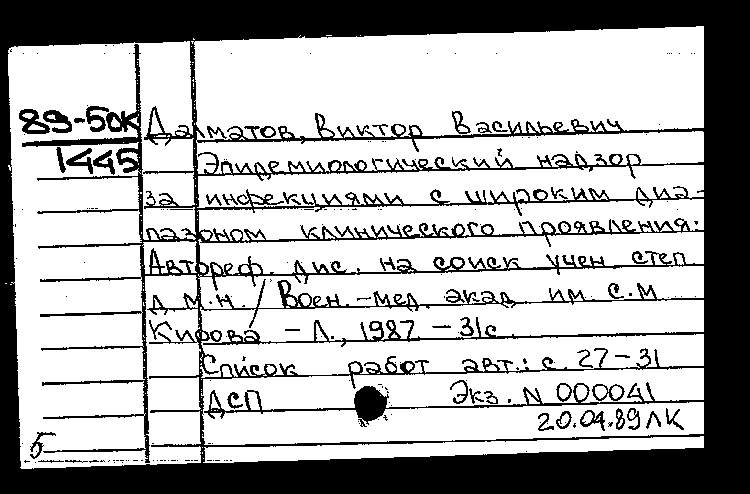 89-5ДК
1445
Далматов, Виктор Васильевич
Эпидемиологический надзор
за инфекциями с широким диа-
пазоном клинического проявления:
Автореф. дис. на соиск учен степ
д м.н. / Воен.-мед. акад им. С.М
Кирова – Л., 1987 – 31с.
Список работ авт.: с. 27–31
ДСП Экз. N 000041
20.04.89 ЛК
5